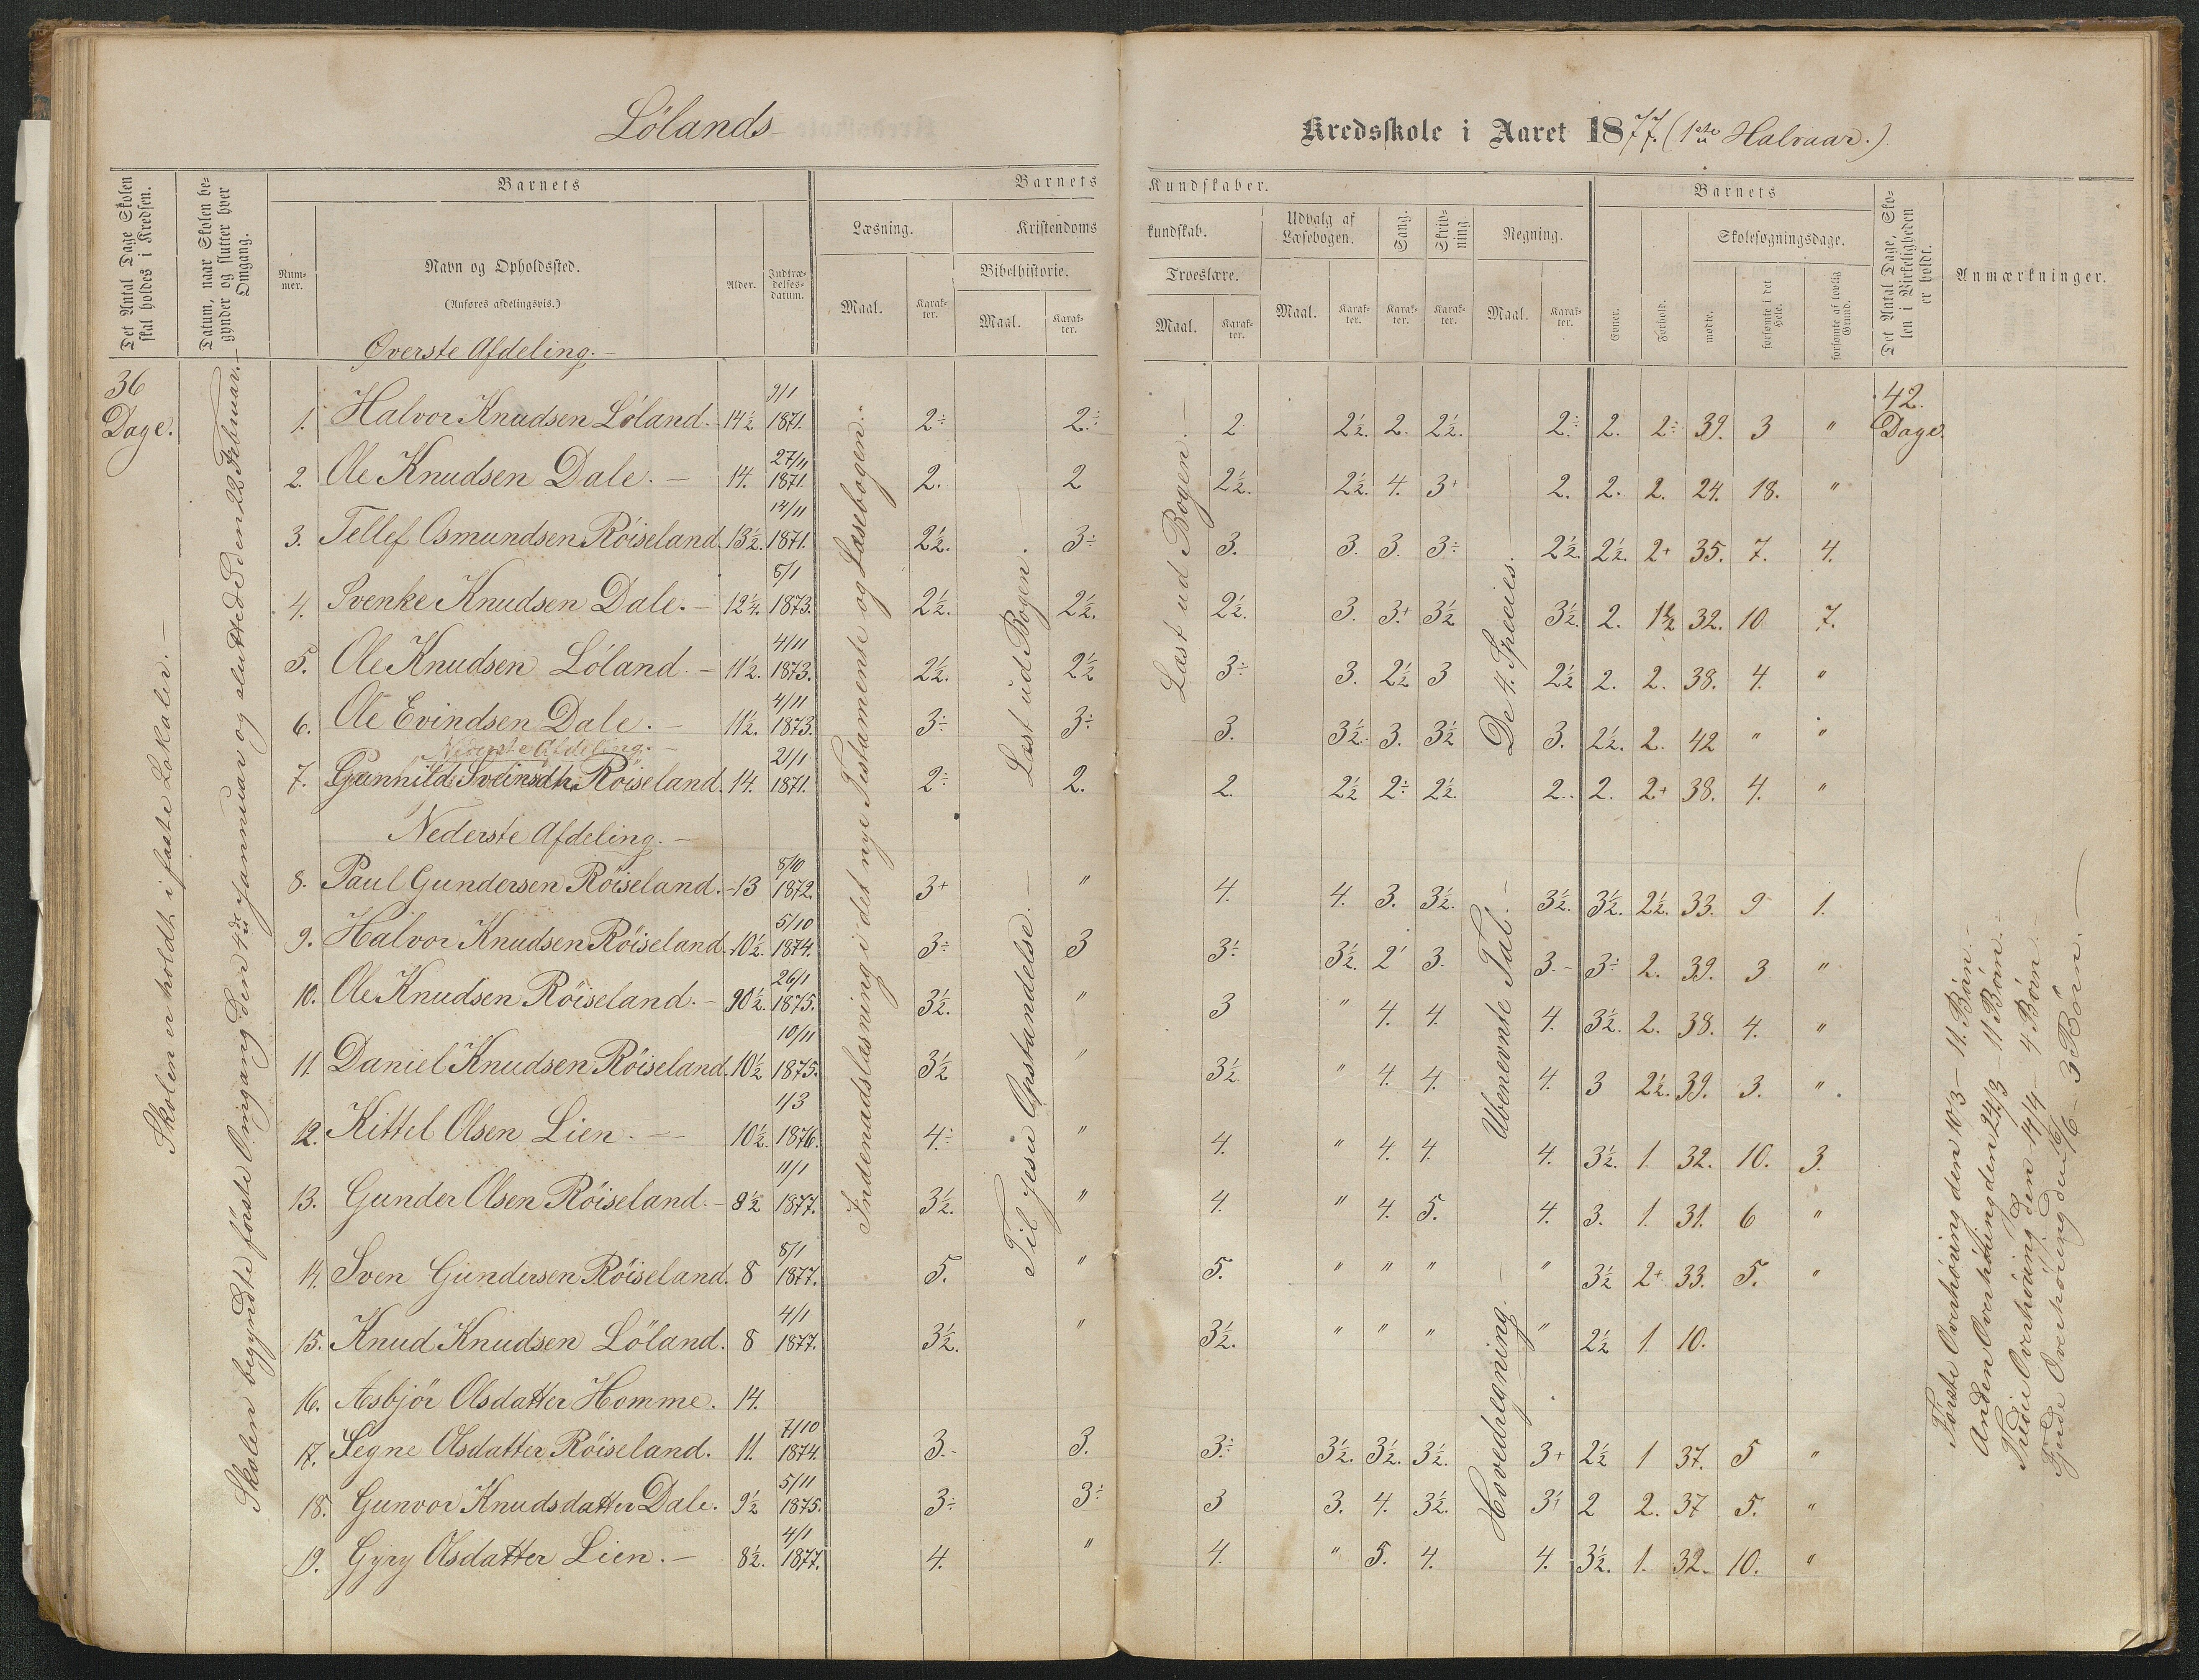 Lölands
Kredsskole i Aaret 1877. (1ste Halvaar.)
Det Antal Dage Skolen skal holdes i Kredsen.
Datum, naar Skolen begynder og slutter hver Omgang.
Barnets
Num-mer.
Navn og Opholdssted.
(Anføres afdelingsvis.)
Alder.
Indtræ-delses-datum.
Barnets
Læsning.
Maal.
Karak-ter.
Kristendoms
Bibelhistorie.
Maal.
Karak-ter.
Kundskaber.
kundskab.
Troeslære.
Maal.
Karak-ter.
Udvalg af Læsebogen.
Maal.
Karak-ter.
Sang.
Karak-ter.
Skriv-ning.
Karak-ter.
Regning.
Maal.
Karak-ter.
Barnets
Evner.
Forhold.
Skolesøgningsdage.
mødte.
forsømte i det Hele.
forsømte af lovlig Grund.
Det Antal Dage, Skolen i Virkeligheden er holdt.
Anmærkninger.
Øverste Afdeling. -
36 Dage.
42. Dage.
1. Halvor Knudsen Löland. - 14½ 9/1 1871. 2÷ 2÷ 2 2½. 2. 2½. 2÷ 2. 2÷ 39. 3 "
2. Ole Knudsen Dale. - 14. 27/11 1871. 2. 2 2½. 2½. 4. 3+ 2. 2. 2. 24. 18. "
3. Tellef Osmundsen Röiseland. 13½. 14/11 1871. 2½. 3÷ 3. 3. 3. 3÷ 2½. 2½. 2+ 35. 7. 4.
4. Svenke Knudsen Dale. - 12¼. 5/1 1873. 2½. 2½. 2½. 3. 3+ 3½ 3½. 2. 1½ 32. 10 7.
5. Ole Knudsen Löland. - 11½. 4/11 1873. 2½. 2½ 3÷ 3. 2½ 3 2½ 2. 2. 38. 4. "
6. Ole Evindsen Dale. - 11½. 4/11 1873. 3÷ 3÷ 3. 3½. 3. 3½ 3. 2½. 2. 42 " "
Nederste Afdeling. -
7. Gunnhild Sveinsdtr. Röiseland. 14. 21/1 1871. 2÷ 2. 2. 2½ 2÷ 2½. 2.. 2. 2+ 38. 4. "
Nederste Afdeling. -
8. Paul Gundersen Röiseland. - 13 8/10 1872. 3+ " 4. 4. 3. 3½. 3½. 3½. 2½. 33. 9 1.
9. Halvor Knudsen Röiseland. 10½. 5/10 1874. 3÷ 3 3÷ 3½. 2' 3. 3.- 3÷ 2. 39. 3 "
10. Ole Knudsen Röiseland. - 10½. 26/1 1875. 3½. " 3 " 4. 4. 4. 3½. 2. 38. 4. "
11. Daniel Knudsen Röiseland. 10½ 10/11 1875. 3½ " 3½. " 4. 4. 4. 3 2½. 39. 3. "
12. Kittel Olsen Lien. - 10½. 4/3 1876. 4÷ " 4. " 4. 4. 4. 3½. 1. 32. 10. 3.
13. Gunder Olsen Röiseland. - 8½ 11/1 1877. 3½. " 4. " 4. 5. 4. 3. 1. 31. 6 "
14. Sven Gundersen Röiseland. 8 8/1 1877. 5. " 5. " " " " 3½ 2+ 33. 5. "
15. Knud Knudsen Löland. 8 4/1 1877. 3½. " 3½. " " " " 2½ 1 10.
16. Asbjör Olsdatter Homme. 14.
17. Segne Olsdatter Röiseland. 11. 7/10 1874. 3.- 3. 3÷ 3½. 3½. 3½. 3+ 2½ 1 37. 5 "
18. Gunvor Knudsdatter Dale. 9½ 5/11 1875. 3÷ 3÷ 3 3. 4. 3½. 3+ 2 2. 37 5. "
19. Gyry Olsdatter Lien. - 8½. 4/1 1877. 4. " 4. " 5. 4. 4. 3½. 1. 32. 10. "
Skolen er holdt i faste Lokaler. -
Skolen begyndte første Omgang den 4de Jannuar og sluttede den 22 Februar. -
Indenadslæsning i det nye Testamente og Læsebogen. -
Læst ud Bogen. -
Til Jesu Opstandelse. -
Læst ud Bogen. -
De 4. Species. -
Ubenevnte Tal. -
Hovedregning. -
Første Overhöring den 10/3 - 11. Börn. -
Anden Overhöring den 24/3 - 11 Börn. -
Tredie Overhöring den 14/4 - 4 Börn. -
Fjrde Overhöring den 9/6 - 3 Börn. -